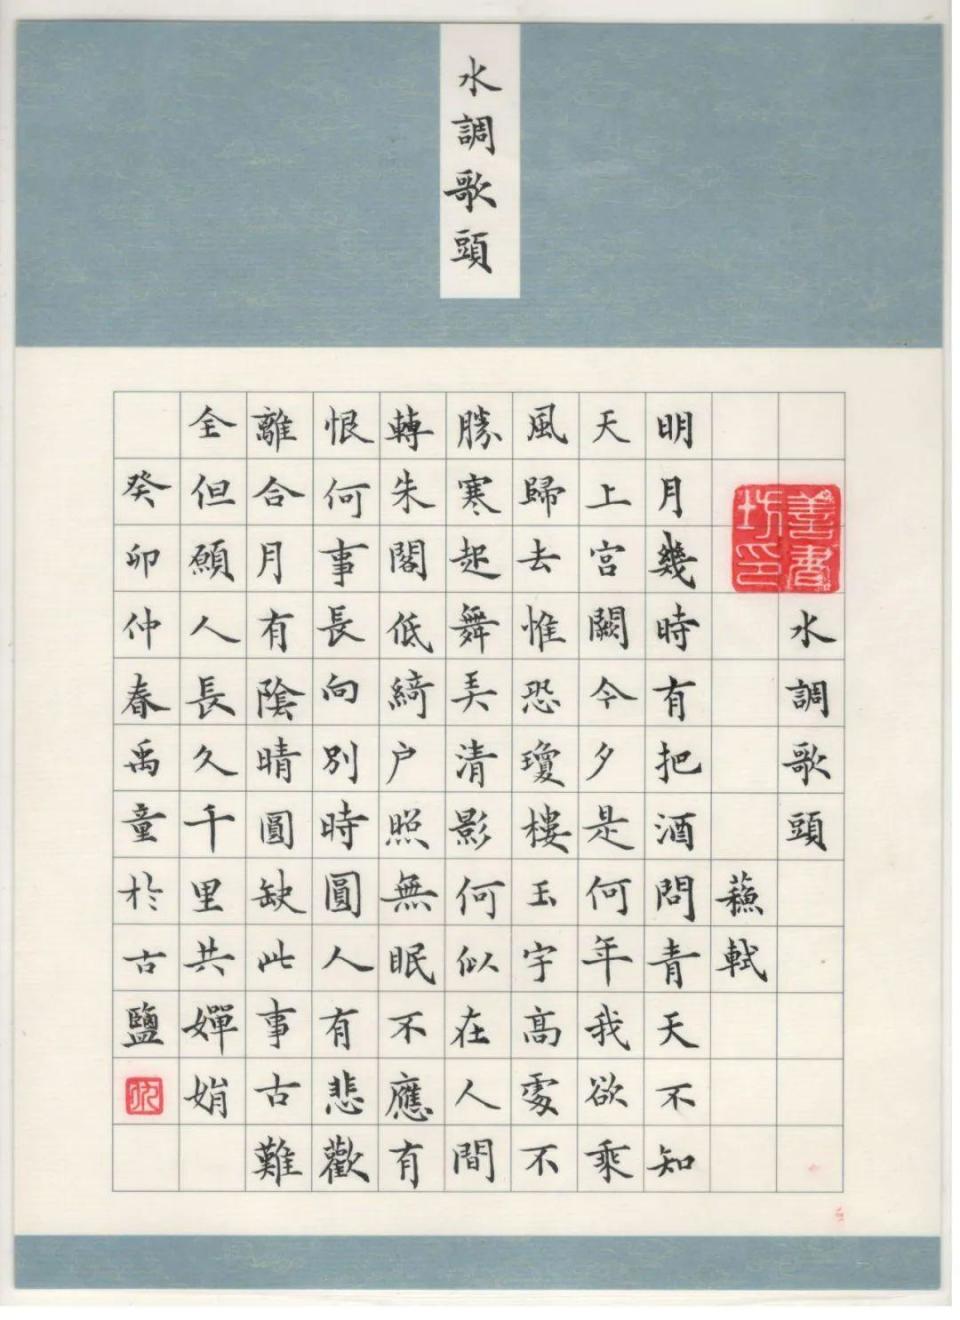 水調歌頭
善書坊印
水調歌頭
蘓軾
明月幾時有把酒問青天不知
天上宮闕今夕是何年我欲乘
風歸去惟恐瓊樓玉宇高處不
勝寒起舞弄清影何似在人間
轉朱閣低綺户照無眠不應有
恨何事長向別時圓人有悲歡
離合月有陰晴圓缺此事古難
全但願人長久千里共嬋娟
癸卯仲春禹童於古鹽